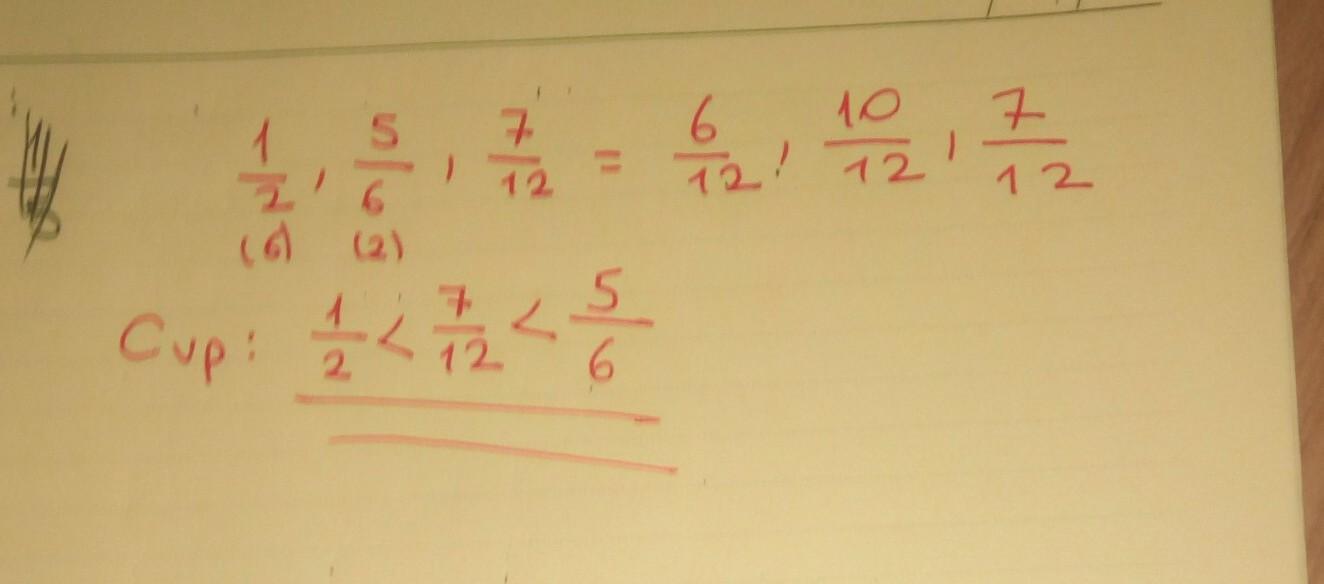 1/2, 5/6, 7/12 = 6/12, 10/12, 7/12
(6) (2)
Cvp: 1/2 < 7/12 < 5/6